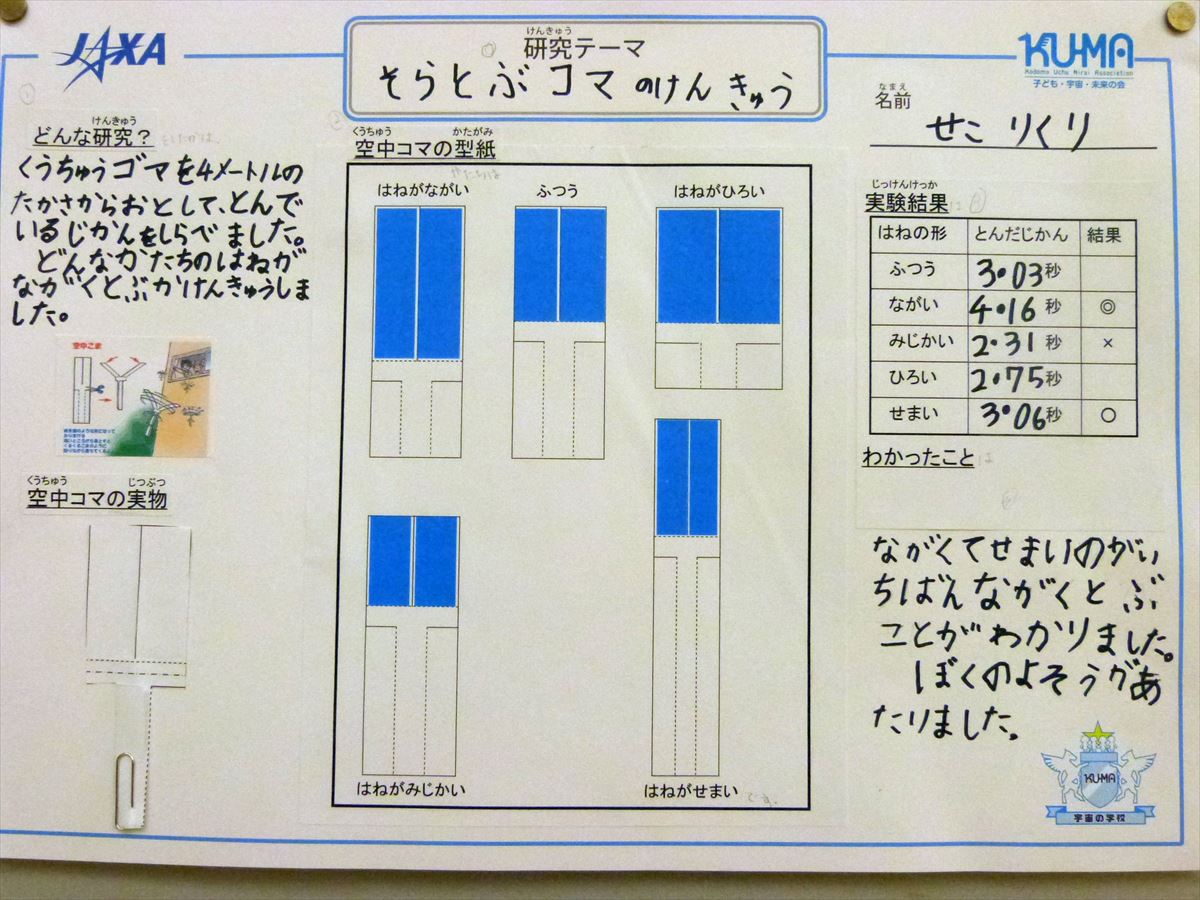 JAXA
けんきゅう
研究テーマ
そらとぶコマのけんきゅう
KU-MA
Kodomo Uchu Mirai Association
子ども・宇宙・未来の会
なまえ
名前
せこ りくり
けんきゅう
どんな研究？
くうちゅうゴマを4メートルの
たかさからおとして、とんで
いるじかんをしらべました。
どんなかたちのはねが
ながくとぶかけんきゅうしま
した。
空中ごま
くうちゅう じつぶつ
空中コマの実物
くうちゅう かたがみ
空中コマの型紙
はねがながい
ふつう
はねがひろい
はねがみじかい
はねがせまい
じっけんけっか
実験結果
はねの形 とんだじかん 結果
ふつう 3.03秒
ながい 4.16秒 ◎
みじかい 2.31秒 ×
ひろい 2.75秒
せまい 3.06秒 ○
わかったこと
ながくてせまいのがい
ちばんながくとぶ
ことがわかりました。
ぼくのよそうがあ
たりました。
KU-MA
宇宙の学校